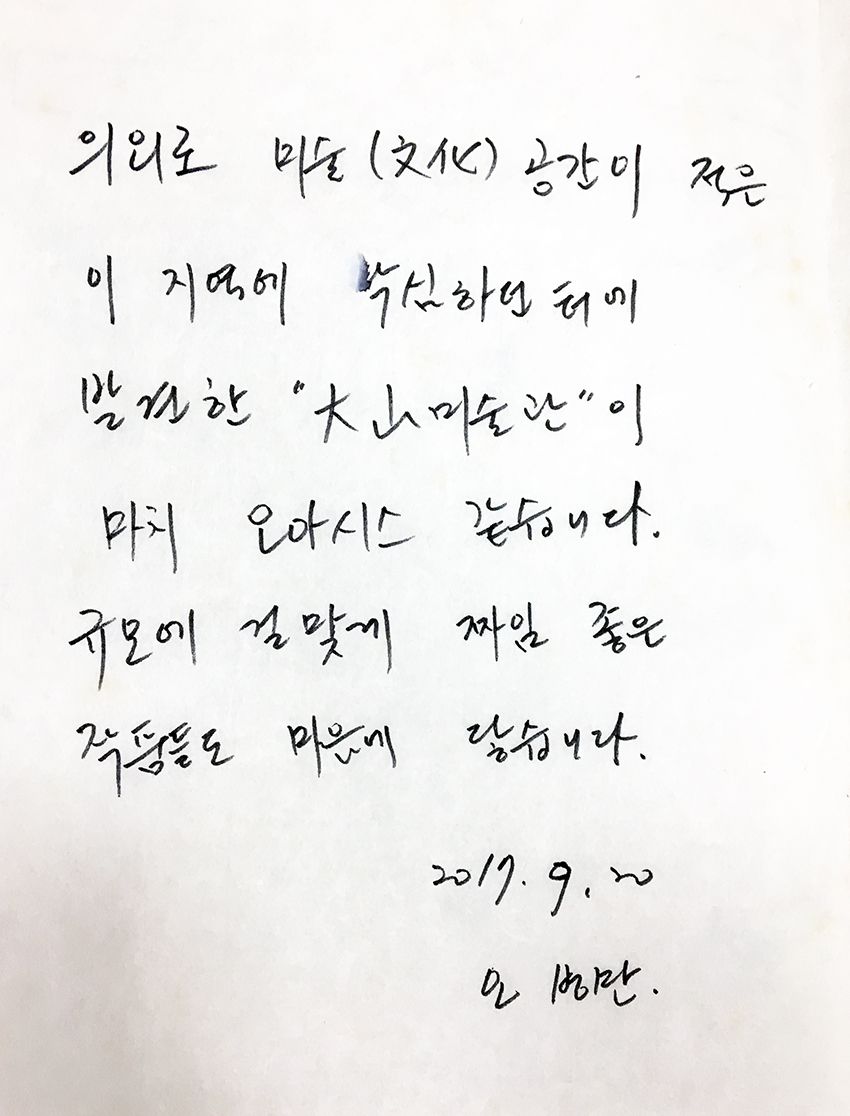 의외로 미술(文化) 공간이 적은
이 지역에 낙심하던 터에
발견한 "大山미술관"이
마치 오아시스 같습니다.
규모에 걸맞게 짜임 좋은
작품들도 마음에 닿습니다.
2017. 9. 20
오 병만.